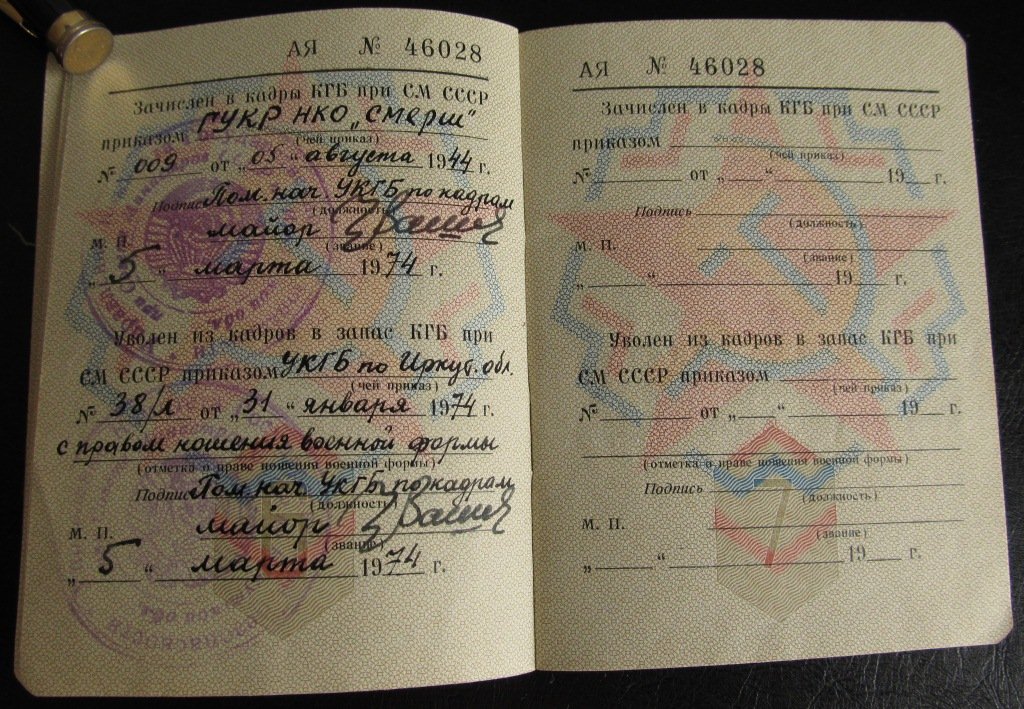 АЯ № 46028
Зачислен в кадры КГБ при СМ СССР
приказом ГУКР НКО „Смерш"
(чей приказ)
№ 009 от „05" августа 1944 г.
Подпись Пом. нач. УКГБ по кадрам
(должность)
майор
(звание)
М. П.
„5" марта 1974 г.
Уволен из кадров в запас КГБ при
СМ СССР приказом УКГБ по Иркут. обл.
(чей приказ)
№ 38/л от „31" января 1974 г.
с правом ношения военной формы
(отметка о праве ношения военной формы)
Подпись Пом. нач. УКГБ по кадрам
(должность)
майор
М. П.
(звание)
„5" марта 1974 г.
АЯ № 46028
Зачислен в кадры КГБ при СМ СССР
приказом
(чей приказ)
№ от „ " 19 г.
Подпись
(должность)
М. П.
(звание)
„ " 19 г.
Уволен из кадров в запас КГБ при
СМ СССР приказом
(чей приказ)
№ от „ " 19 г.
(отметка о праве ношения военной формы)
Подпись
(должность)
М. П.
(звание)
„ " 19 г.